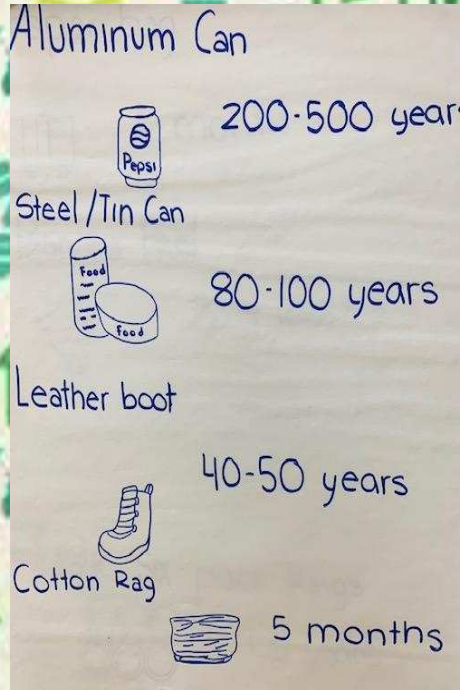 Aluminum Can
200-500 year
Pepsi
Steel/Tin Can
Food
Food
80-100 years
Leather boot
40-50 years
Cotton Rag
5 months